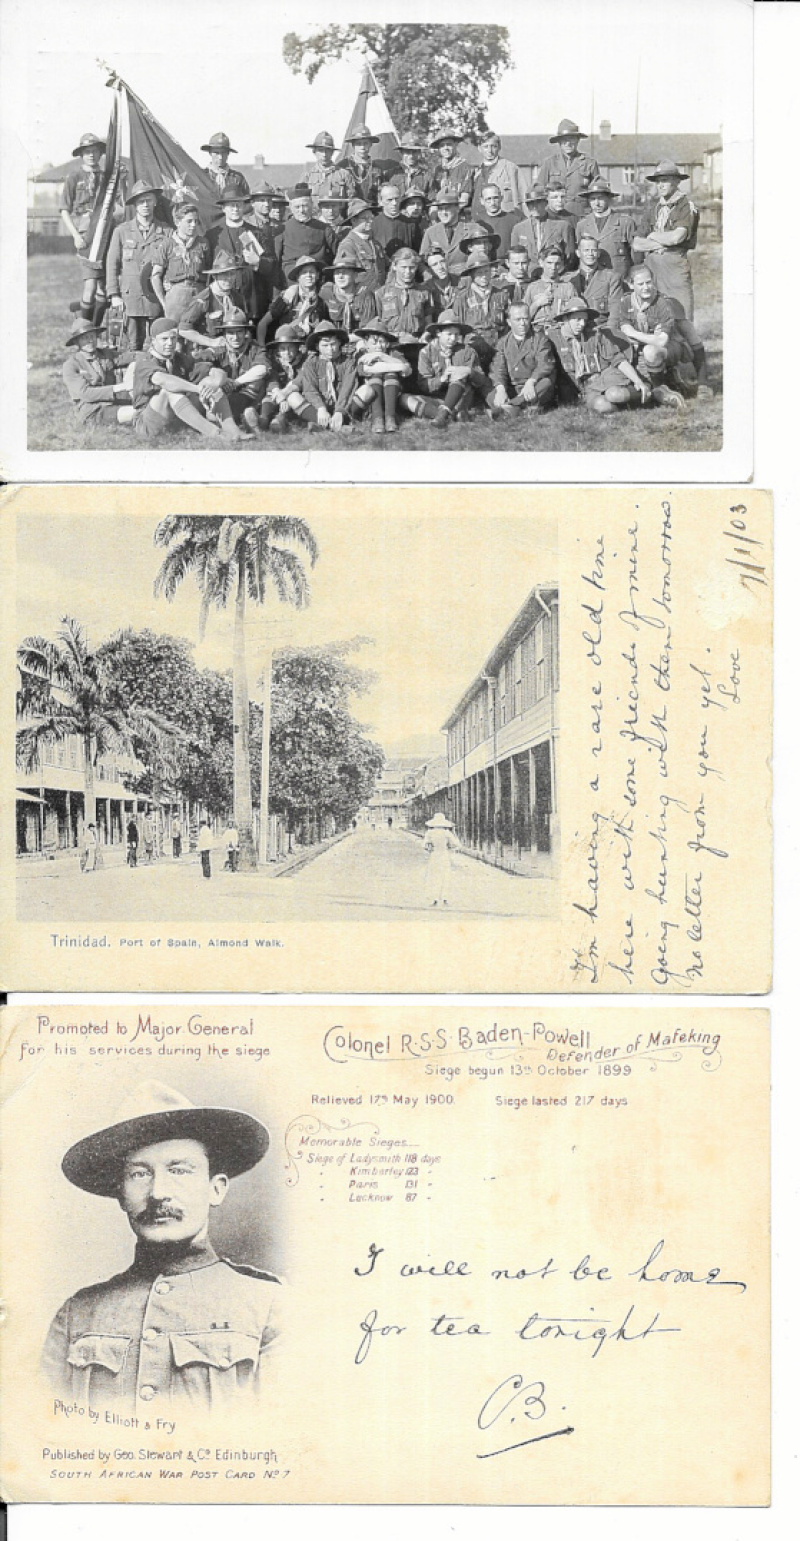 Trinidad. Port of Spain, Almond Walk.
I'm having a rare old time
here with some friends of mine.
Going hunting with them tomorrow.
No letter from you yet.
Love
7/1/03
Promoted to Major General
for his services during the siege
Colonel R·S·S· Baden-Powell
Defender of Mafeking
Siege begun 13th October 1899
Relieved 17th May 1900. Siege lasted 217 days
Memorable Sieges
Siege of Ladysmith 118 days
" Kimberley 123 "
" Paris 131 "
" Lucknow 87 "
I will not be home
for tea tonight
C.B.
Photo by Elliott & Fry
Published by Geo. Stewart & Co. Edinburgh
SOUTH AFRICAN WAR POST CARD No 7